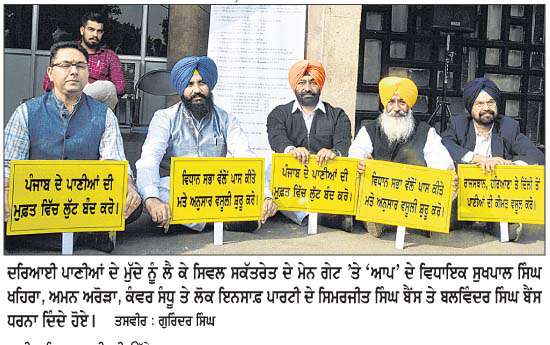 ਪੰਜਾਬ ਦੇ ਪਾਣੀਆਂ ਦੀ
ਮੁਫ਼ਤ ਵਿੱਚ ਲੁੱਟ ਬੰਦ ਕਰੋ।
ਵਿਧਾਨ ਸਭਾ ਵੱਲੋਂ ਪਾਸ ਕੀਤੇ
ਮਤੇ ਅਨੁਸਾਰ ਵਸੂਲੀ ਸ਼ੁਰੂ ਕਰੋ।
ਪੰਜਾਬ ਦੇ ਪਾਣੀਆਂ ਦੀ
ਮੁਫ਼ਤ ਵਿੱਚ ਲੁੱਟ ਬੰਦ ਕਰੋ।
ਵਿਧਾਨ ਸਭਾ ਵੱਲੋਂ ਪਾਸ ਕੀਤੇ
ਮਤੇ ਅਨੁਸਾਰ ਵਸੂਲੀ ਸ਼ੁਰੂ ਕਰੋ।
ਰਾਜਸਥਾਨ, ਹਰਿਆਣਾ ਤੇ ਦਿੱਲੀ ਤੋਂ
ਪਾਣੀਆਂ ਦੀ ਕੀਮਤ ਵਸੂਲ ਕਰੋ।
ਦਰਿਆਈ ਪਾਣੀਆਂ ਦੇ ਮੁੱਦੇ ਨੂੰ ਲੈ ਕੇ ਸਿਵਲ ਸਕੱਤਰੇਤ ਦੇ ਮੇਨ ਗੇਟ 'ਤੇ 'ਆਪ' ਦੇ ਵਿਧਾਇਕ ਸੁਖਪਾਲ ਸਿੰਘ
ਖਹਿਰਾ, ਅਮਨ ਅਰੋੜਾ, ਕੰਵਰ ਸੰਧੂ ਤੇ ਲੋਕ ਇਨਸਾਫ਼ ਪਾਰਟੀ ਦੇ ਸਿਮਰਜੀਤ ਸਿੰਘ ਬੈਂਸ ਤੇ ਬਲਵਿੰਦਰ ਸਿੰਘ ਬੈਂਸ
ਧਰਨਾ ਦਿੰਦੇ ਹੋਏ। ਤਸਵੀਰ : ਗੁਰਿੰਦਰ ਸਿੰਘ